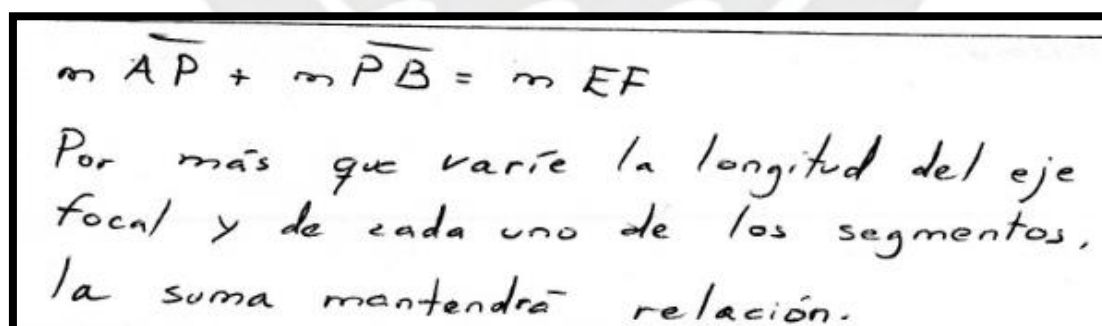 m A̅P̅ + m P̅B̅ = m EF
Por más que varíe la longitud del eje
focal y de cada uno de los segmentos,
la suma mantendrá relación.